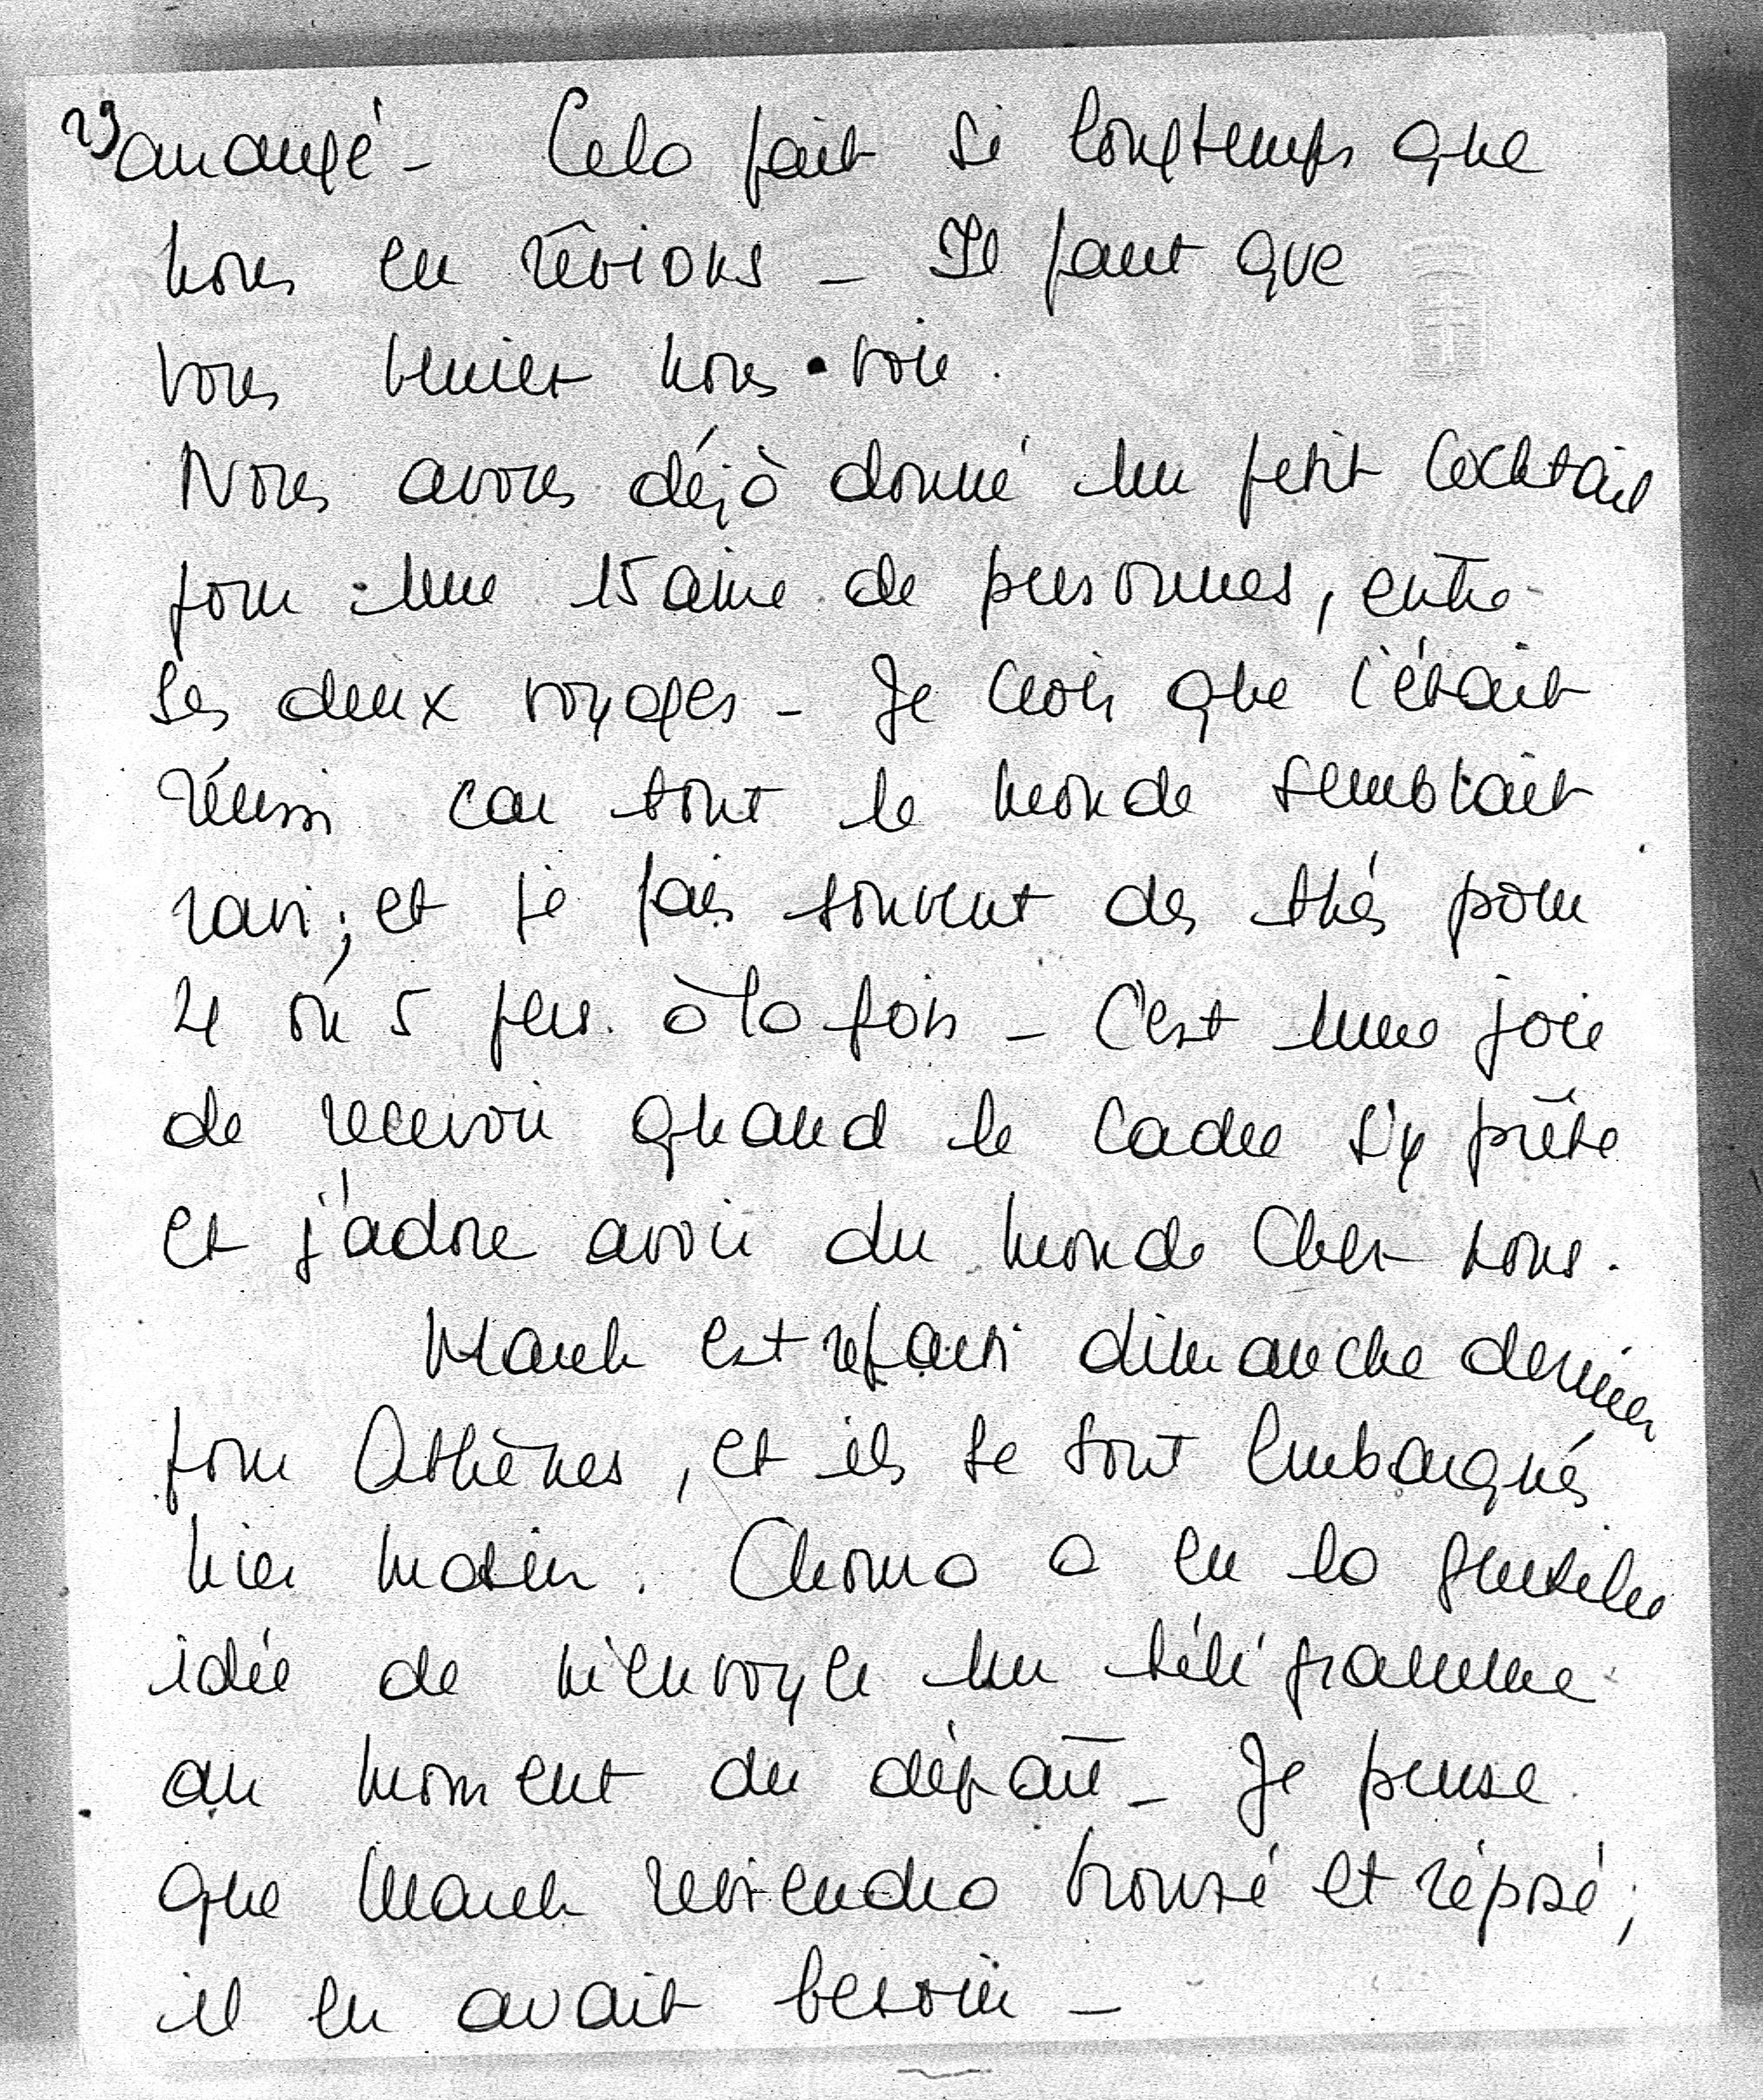 2) arrangé - Cela fait si longtemps que
nous en rêvions - Il faut que
vous veniez nous voir.
Nous avons déjà donné un petit cocktail
pour une 15aine de personnes, entre
ses deux voyages - Je crois que c'était
réussi car tout le monde semblait
ravi; et je fais souvent des thés pour
4 ou 5 pers. à la fois - C'est une joie
de recevoir quand le cadre s'y prête
et j'adore avoir du monde chez nous.
est reparti dimanche dernier
pour Athènes, et ils se sont embarqués
hier matin. a eu la gentille
idée de m'envoyer un télégramme
au moment du départ - Je pense
que reviendra bronzé et réposé;
il en avait besoin -